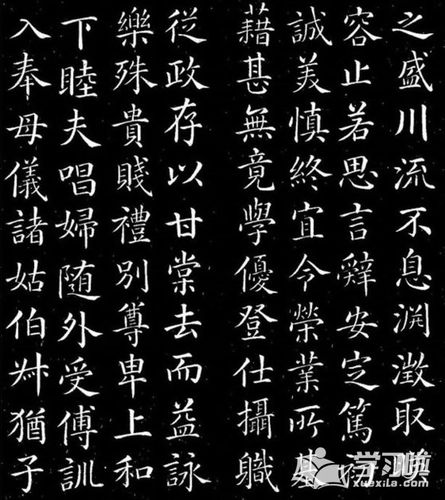 之盛川流不息渊澂取暎
容止若思言辤安定篤初
誠美慎終宜令榮業所基
藉甚無竟學優登仕攝職
從政存以甘棠去而益詠
樂殊貴賤禮別尊卑上和
下睦夫唱婦随外受傅訓
入奉母儀諸姑伯叔猶子
学习啦
xuexila.com